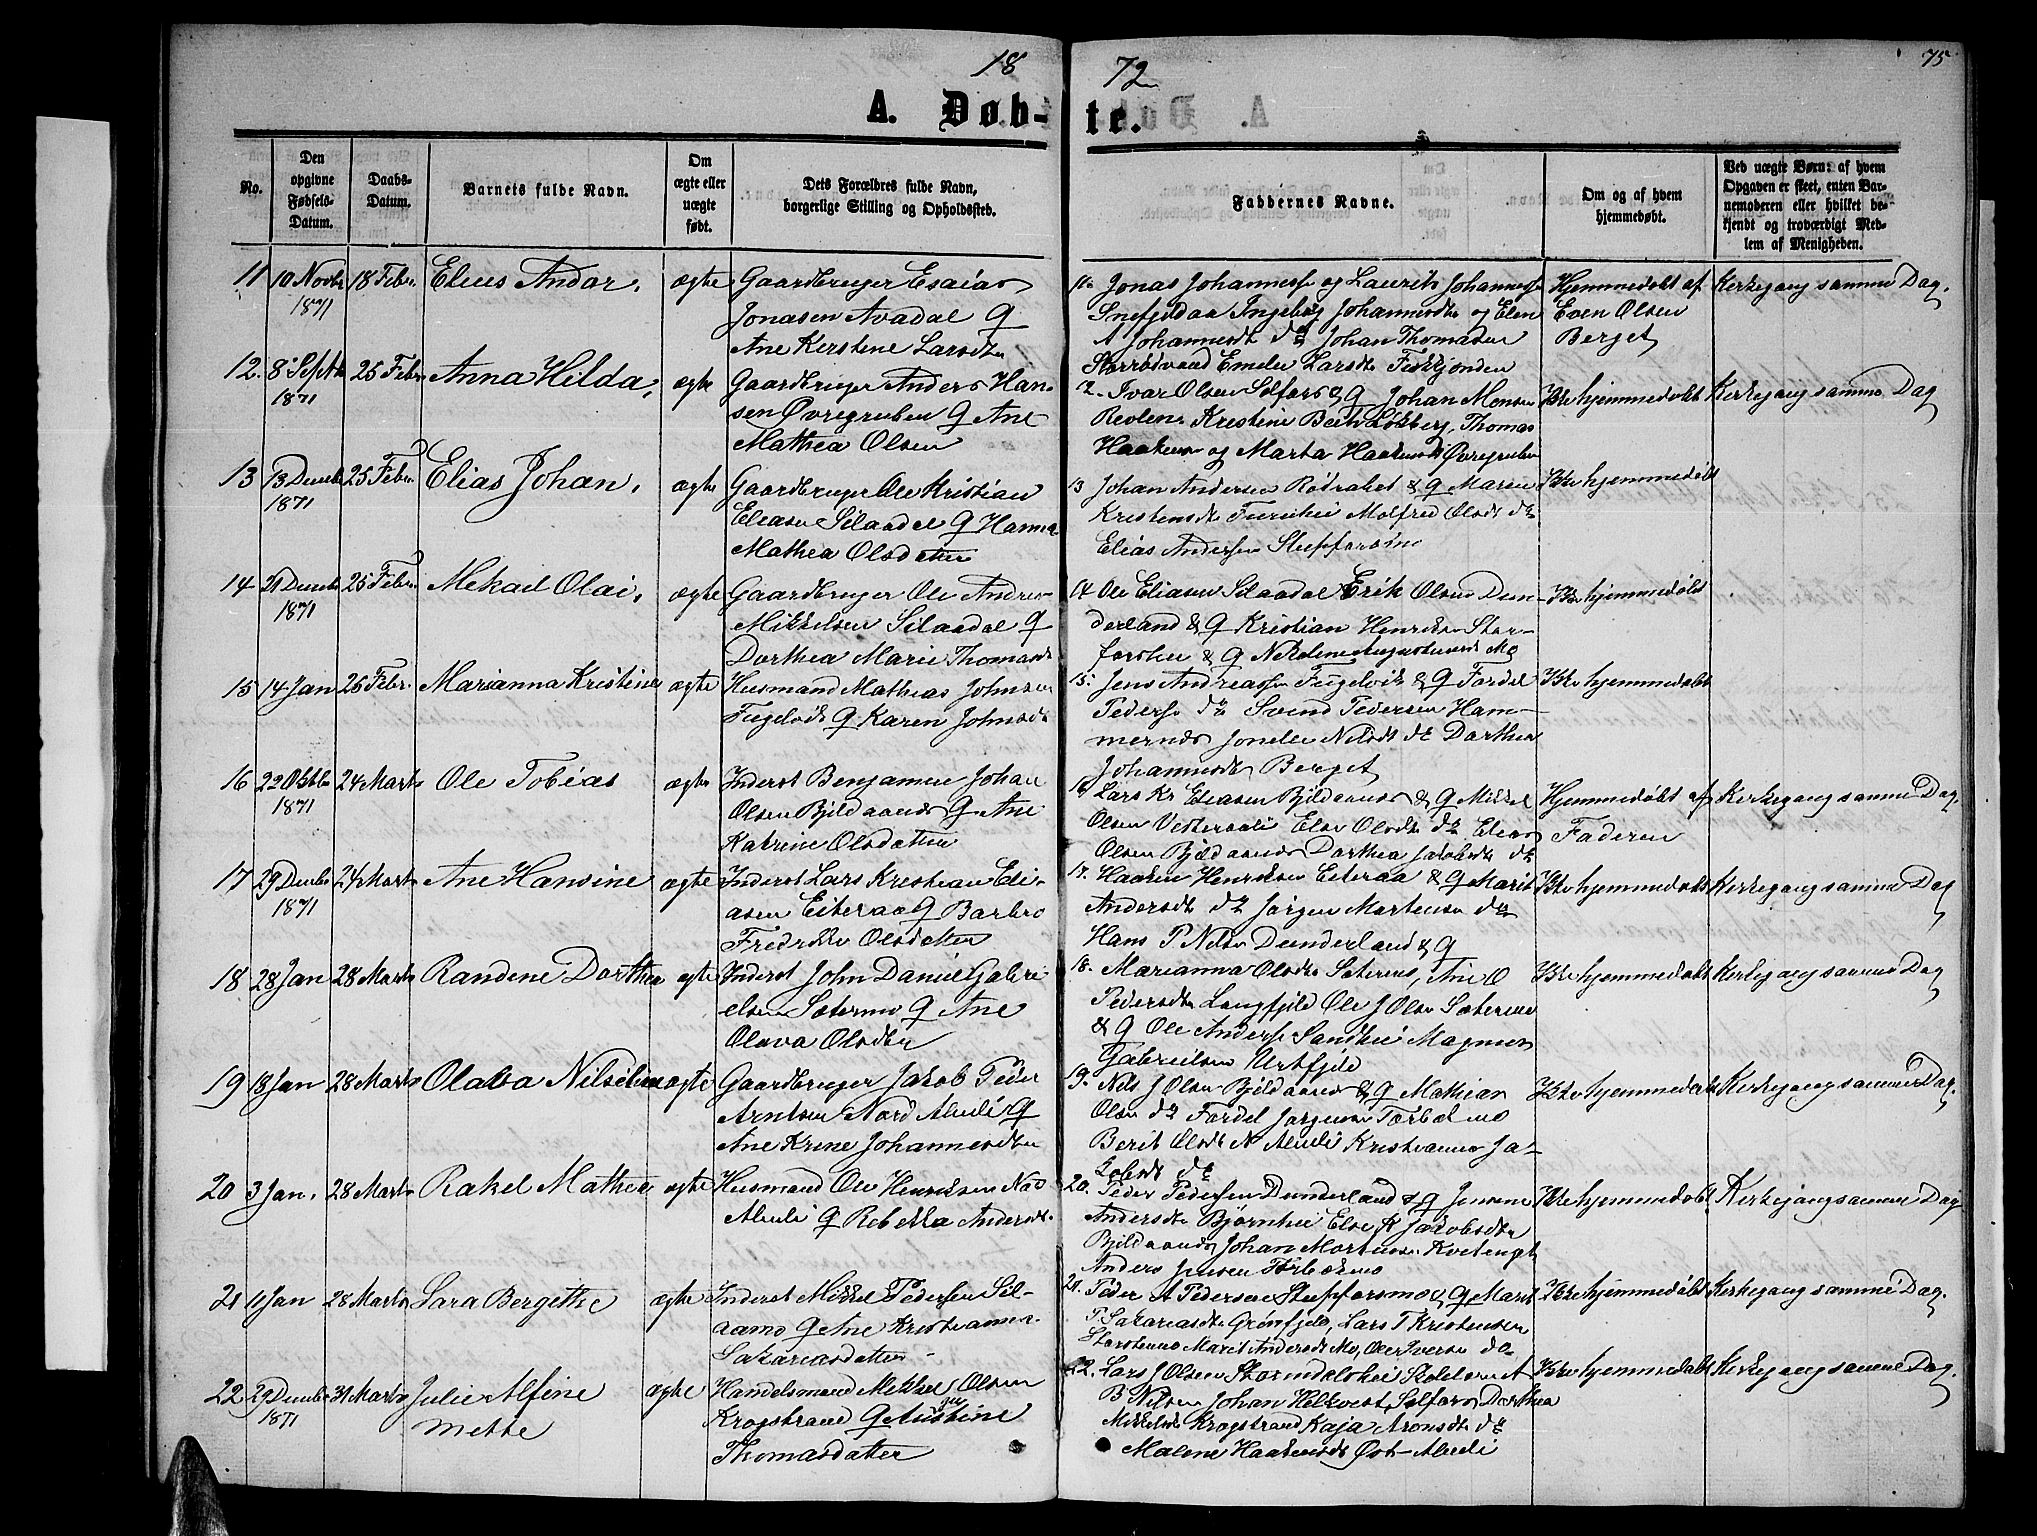 18 72 75
A. Døb- te.
No.
Den opgivne Fødsels-Datum.
Daabs-Datum.
Barnets fulde Navn.
Om ægte eller uægte født.
Dets Forældres fulde Navn,
borgerlige Stilling og Opholdssted.
Faddernes Navne.
Om og af hvem
hjemmedøbt.
Ved uægte Børn: af hvem
Opgaven er skeet, enten Bar-
nemoderen eller hvilket be-
kjendt og troværdigt Med-
lem af Menigheden.
11 10 Novbr 18 Febr. Elius Andor, ægte Gaardbruger Esaias
1871 Jonasen Avadal &
Ane Kerstine Larsdtr
11. Jonas Johanness og Laurits Johanness
Snefjeldaa Ingeborg Johannesdtr og Elen
A Johannesdt do Johan Thomasen
Storrødvand Emelie Larsdt
Hjemmedøbt af Even Olsen Berget
Kirkegang samme Dag.
12. 8 Septbr 25 Febr Anna Hilda, ægte Gaardbruger Anders Han-
1871 sen Øvregruben & Ane
Mathea Olsen
12. Ivar Olsen Selfors & Q Johan Monsen
Revlen Kristine Berth Thomas
Haakens og Marta Haakensdt Øvregruben
Ikke hjemmedøbt Kirkegang samme Dag
13 13 Decmbr 25 Febr Elias Johan, ægte Gaardbruger Ole Kristian
1871 Eleasen Silaadal & Hanna
Mathea Olsdatter
13 Johan Andersen & Q Maren
Kristensdt Molfred Olsdt do
Elias Andersen Stupforsmo
Ikke hjemmedøbt
14 21 Decmbr 25 Febr Mekael Olai, ægte Gaardbruger Ole Andreas
1871 Mikkelsen Silaadal &
Dorthea Marie Thomasdt
14 Ole Eliasen Silaadal Erik Olsen Dun-
derland & Q Kristian Henriksen Stor-
forshei & Q Nekoline Augustinusdt Mo
Ikke hjemmedøbt
15 14 Jan 25 Febr. Marianna Kristine ægte Husmand Mathias Johnsen
Fugelvik & Karen Johnsdt
15. Jens Andreassen Fugelvik & Q Fordel
Peders do Svend Pedersen Ham-
mernes Jonelie Nilsdt do Dorthea
Johannesdt Berget
Ikke hjemmedøbt
16 22 Oktbr 24 Marts Ole Tobias ægte Inderst Benjamen Johan
1871 Olsen Bjeldaanes & Ane
Katrine Olsdatter
16 Lars Kr Eleasen Bjeldaanes & Q Mikkel
Olsen Vesterali Else Olsdt do Elias
Olsen Bjeldaanes Dorthea Jakobsdt do
Hjemmedøbt af Faderen
Kirkegang samme Dag.
17 29 Decmbr 24 Marts Ane Hansine ægte Inderst Lars Kristian Eli-
1871 asen Eiteraa & Barbro
Fredrikke Olsdatter
17. Haaken Henriksen Eiteraa & Q Marit
Andersdt do Jørgen Martensen do
Hans P Nilsen Dunderland & Q
Ikke hjemmedøbt Kirkegang samme Dag
18 28 Jan 28 Marts Randene Dorthea ægte Inderst John Daniel Gabri-
elsen Setermo & Ane
Olava Olsdtr
18. Marianna Olsdtr Setermo, Ane O
Pedersdtr Langfjeld Ole J Olsen Setermo
& Q Ole Anders Sandhei Magnus
Gabrielsen Urtfjeld
Ikke hjemmedøbt Kirkegang samme Dag
19 18 Jan 28 Marts Olava Nilseline ægte Gaardbruger Jakob Peder
Arntsen Nord Alteli &
Ane Krine Johannesdtr
19. Nils J Olsen Bjeldaanes & Q Mathias
Olsen do Fordel Jørgensen Tørbekmo
Berit Olsdt N Alteli Kristianna Ja-
kobsdt do
Ikke hjemmedøbt Kirkegang samme Dag.
20 3 Jan. 28 Marts Rakel Mathea ægte Husmand Ole Henriksen Nord
Alteli & Rebekka Andersdt.
20. Peder Pedersen Dunderland & Q Jensine
Andersdtr Bjørnhei Else K Jakobsdtr
Bjeldaanes Johan Mortensen Kvitengt
Anders Jensen Tørbekmo
Ikke hjemmedøbt Kirkegang samme Dag
21 11 Jan 28 Marts Sara Bergethe ægte Inderst Mikkel Pedersen Sil-
aamo & Ane Kristianna
Sakariasdatter
21. Peder A Pedersen Stupforsmo & Q Marit
P Sakariasdtr Grønfjeld, Lars T Kristensen
Marit Andersdt Mo, Ole Iversen do
Ikke hjemmedøbt Kirkegang samme Dag.
22 29 Decmbr 31 Marts Julie Alfine ægte Handelsmand Mekkel Olsen
1871 Mette Krogstrand & Justine
Thomasdatter
22. Lars J Olsen Stormdalshei A
B Nilsen Johan Helkvist, Selfors Dorthea
Mikkelsdt Krogstrand Kaja Aronsdt do
Malene Haakensdt Øst-Alteli
Ikke hjemmedøbt Kirkegang samme Dag.